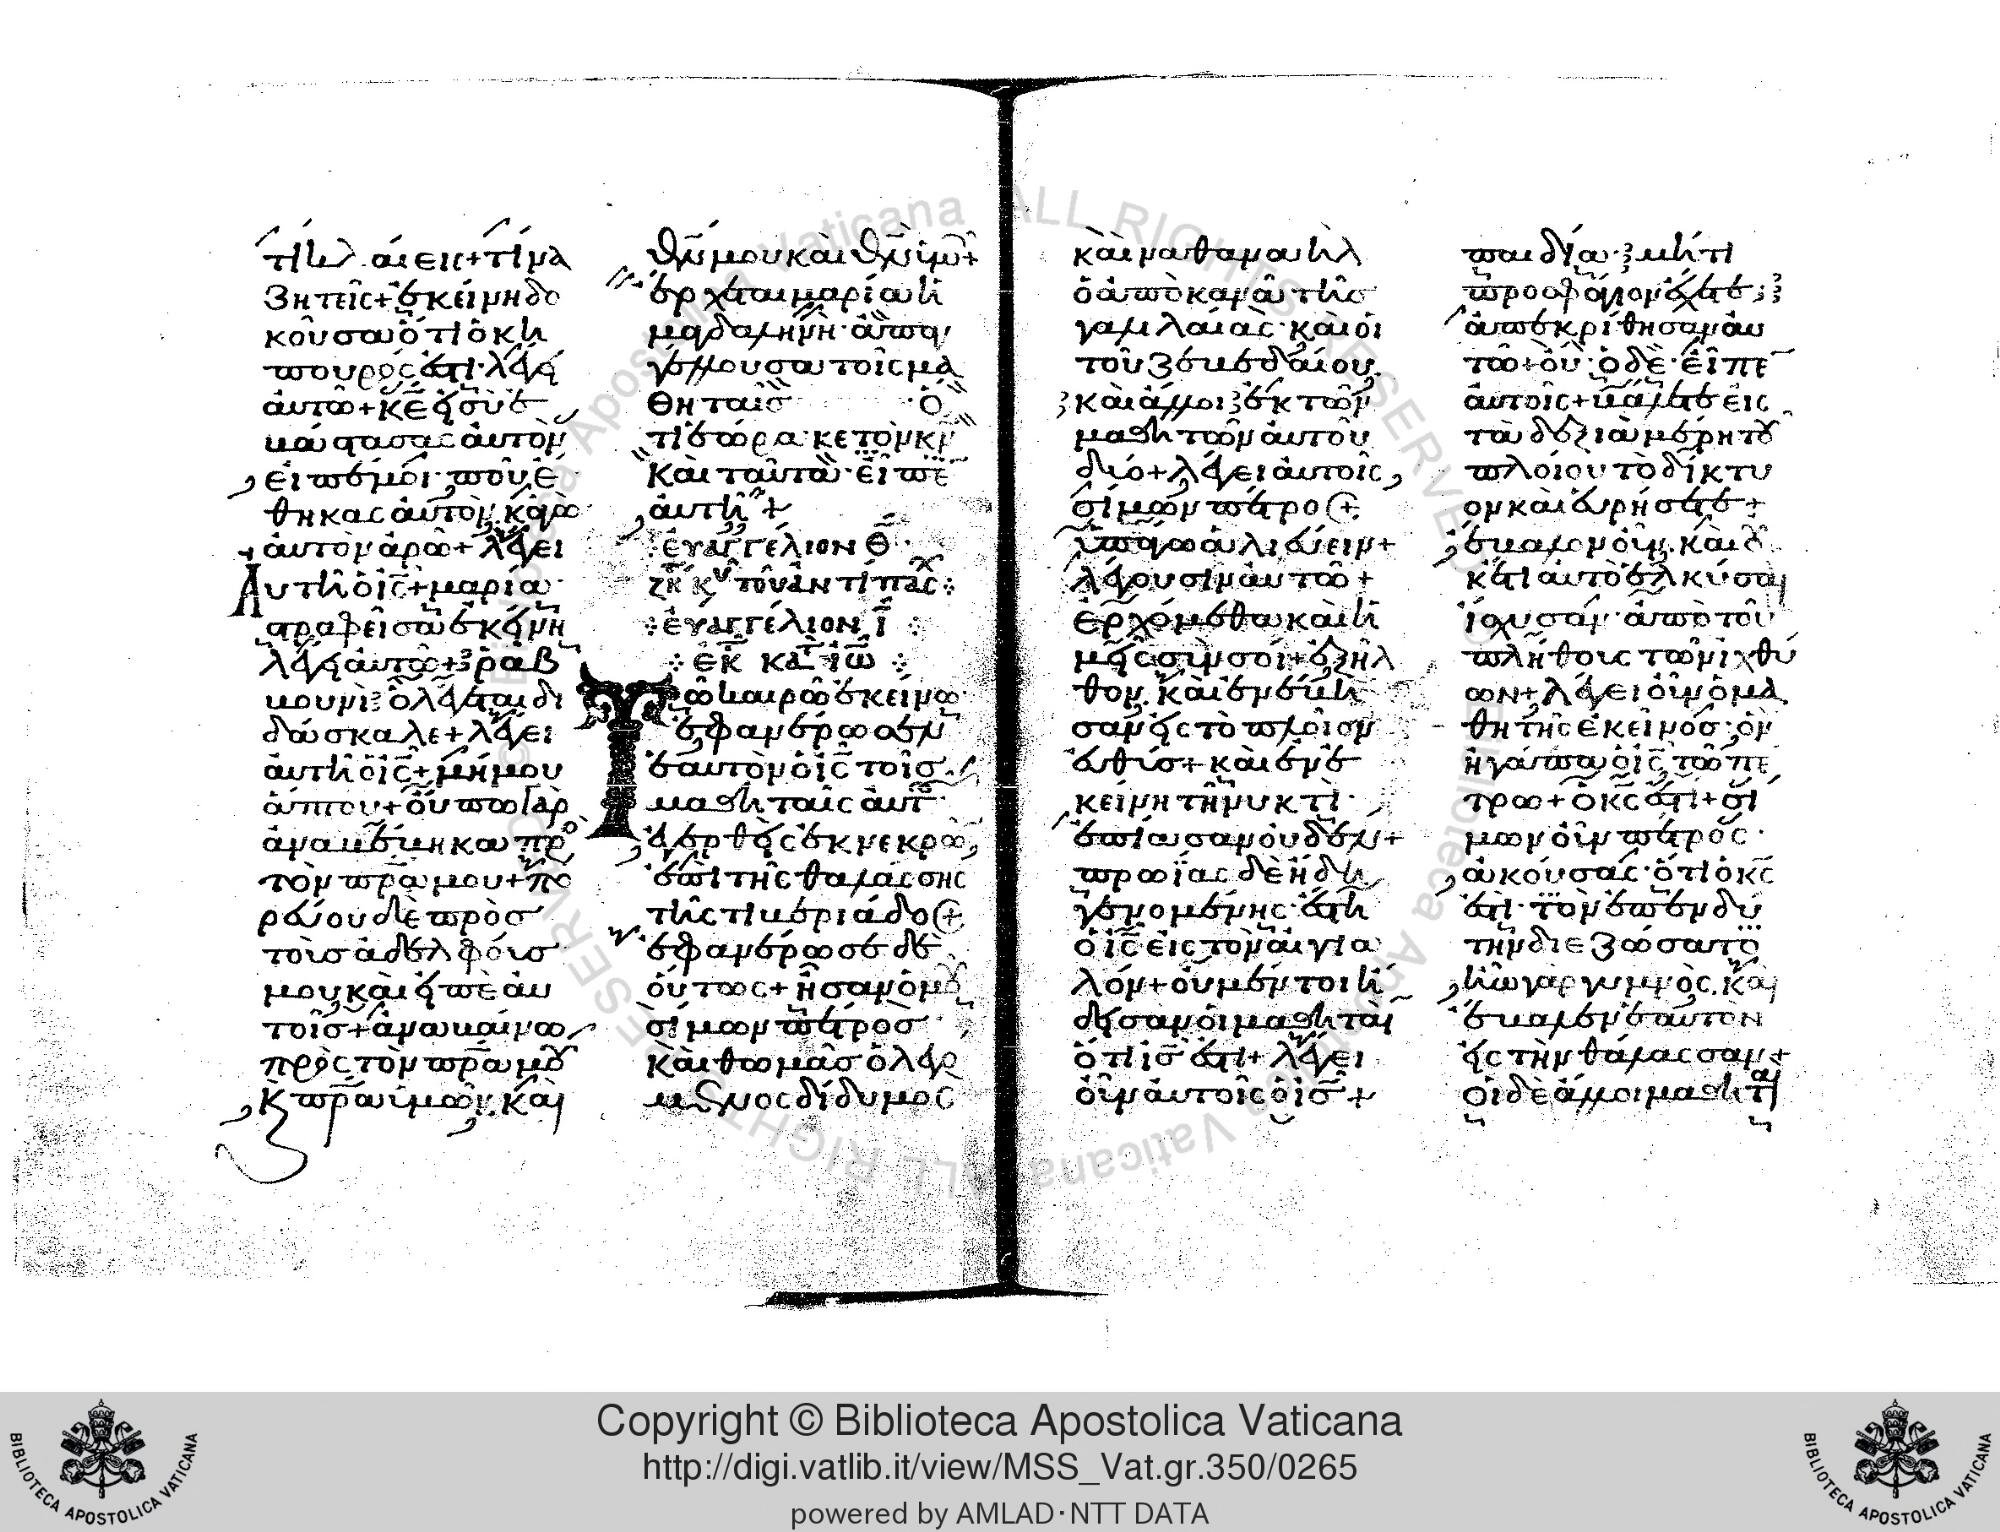 τί κλαίεις+τίνα
ζητεῖς+ἐκείνη δο
κοῦσα ὅτι ὁ κη
πουρός ἐστι· λέγει
αὐτῶ+κε̅ εἰ σὺ ἐ
βάστασας αὐτὸν
εἰπέ μοι· ποῦ ἔ
θηκας αὐτὸν, κἀγὼ
αὐτὸν ἀρῶ+λέγει
Αὐτῆ ὁ ις̅+μαρία·
στραφεῖσα ἐκείνη
λέγει αὐτῶ+ραβ
βουνὶ ὃ λέγεται δι
δάσκαλε+λέγει
αὐτῆ ὁ ις̅+μή μου
ἅπτου+οὔπω γὰρ
ἀναβέβηκα πρὸ
τὸν πρα̅ μου+πο
ρεύου δὲ πρὸσ
τοὺσ ἀδελφούσ
μου καὶ εἰπὲ αὐ
τοῖσ+ἀναβαίνω
πρὸς τὸν πρα̅ μου
κ πρα̅ ὑμῶν, καὶ
θν̅ μου καὶ θν̅ ὑμῶν+
ἔρχεται μαρία ἡ
μαγδαληνὴ· ἀπαγ
γέλλουσα τοῖς μα
θηταῖσ ὅ
τι ἑώρακε τὸν κν̅
Καὶ ταῦτα· εἶπεν
αὐτῆ+
εὐαγγέλιον Θ̅
τοῦ ἀντίπασχ
εὐαγγέλιον Ι̅
ἐκ κατ ιω̅
Τῶ καιρῶ ἐκείνω
ἐφανέρωσεν
ἑαυτὸν ὁ ις̅ τοῖσ
μαθηταῖς αὐτ
ἐγερθεὶς ἐκ νεκρῶν,
ἐπὶ τῆς θαλάσσης
τῆς τιβεριάδος+
ἐφανέρωσε δὲ
οὕτως+ἦσαν ὁμοῦ
σίμων πέτροσ
καὶ θωμᾶσ ὁ λεγό
μενος δίδυμος
καὶ ναθαναὴλ
ὁ ἀπὸ κανᾶ τῆσ
γαλιλαίας· καὶ οἱ
τοῦ ζεβεδαίου.
καὶ ἄλλοι ἐκ τῶν
μαθητῶν αὐτοῦ
δύο+λέγει αὐτοῖς,
σίμων πέτρος+
ὑπάγω ἁλιεύειν+
λέγουσιν αὐτῶ+
ἐρχόμεθα καὶ ἡ
μεῖς σὺν σοί+ἐξῆλ
θον, καὶ ἐνέβη
σαν εἰς τὸ πλοῖον
εὐθύσ+καὶ ἐν ἐ
κείνη τῆ νυκτὶ·
ἐπίασαν οὐδέν+
πρωΐας δὲ ἤδη
γενομένης· ἔστη
ὁ ις̅ εἰς τὸν αἰγια
λόν+οὐ μέντοι ἤ
δεισαν οἱ μαθηταὶ
ὅτι ις̅ ἐστι+λέγει
οὖν αὐτοῖς ὁ ισ̅+
παιδία· μή τι
προσφάγιον ἔχετε;
ἀπεκρίθησαν αὐ
τῶ+οὔ· ὁ δὲ· εἶπεν
αὐτοῖς+βάλετε εἰς
τὰ δεξιὰ μέρη τοῦ
πλοίου τὸ δίκτυ
ον καὶ εὑρήσετε+
ἔβαλον οὖν, καὶ οὐ
κέτι αὐτὸ ἑλκύσαι
ἴσχυσαν· ἀπὸ τοῦ
πλήθους τῶν ἰχθύ
ων+λέγει οὖν ὁ μα
θητὴς ἐκεῖνοσ· ὃν
ἠγάπα ὁ ις̅ τῶ πέ
τρω+ὁ κς̅ ἐστὶ+σί
μων οὖν πέτρος·
ἀκούσας· ὅτι ὁ κς̅
ἐστι· τὸν ἐπενδύ
την διεζώσατο
ἦν γὰρ γυμνὸς, καὶ
ἔβαλεν ἑαυτὸν
εἰς τὴν θάλασσαν+
οἱ δὲ ἄλλοι μαθηταὶ
Copyright © Biblioteca Apostolica Vaticana
http://digi.vatlib.it/view/MSS_Vat.gr.350/0265
powered by AMLAD·NTT DATA
BIBLIOTECA APOSTOLICA VATICANA
BIBLIOTECA APOSTOLICA VATICANA